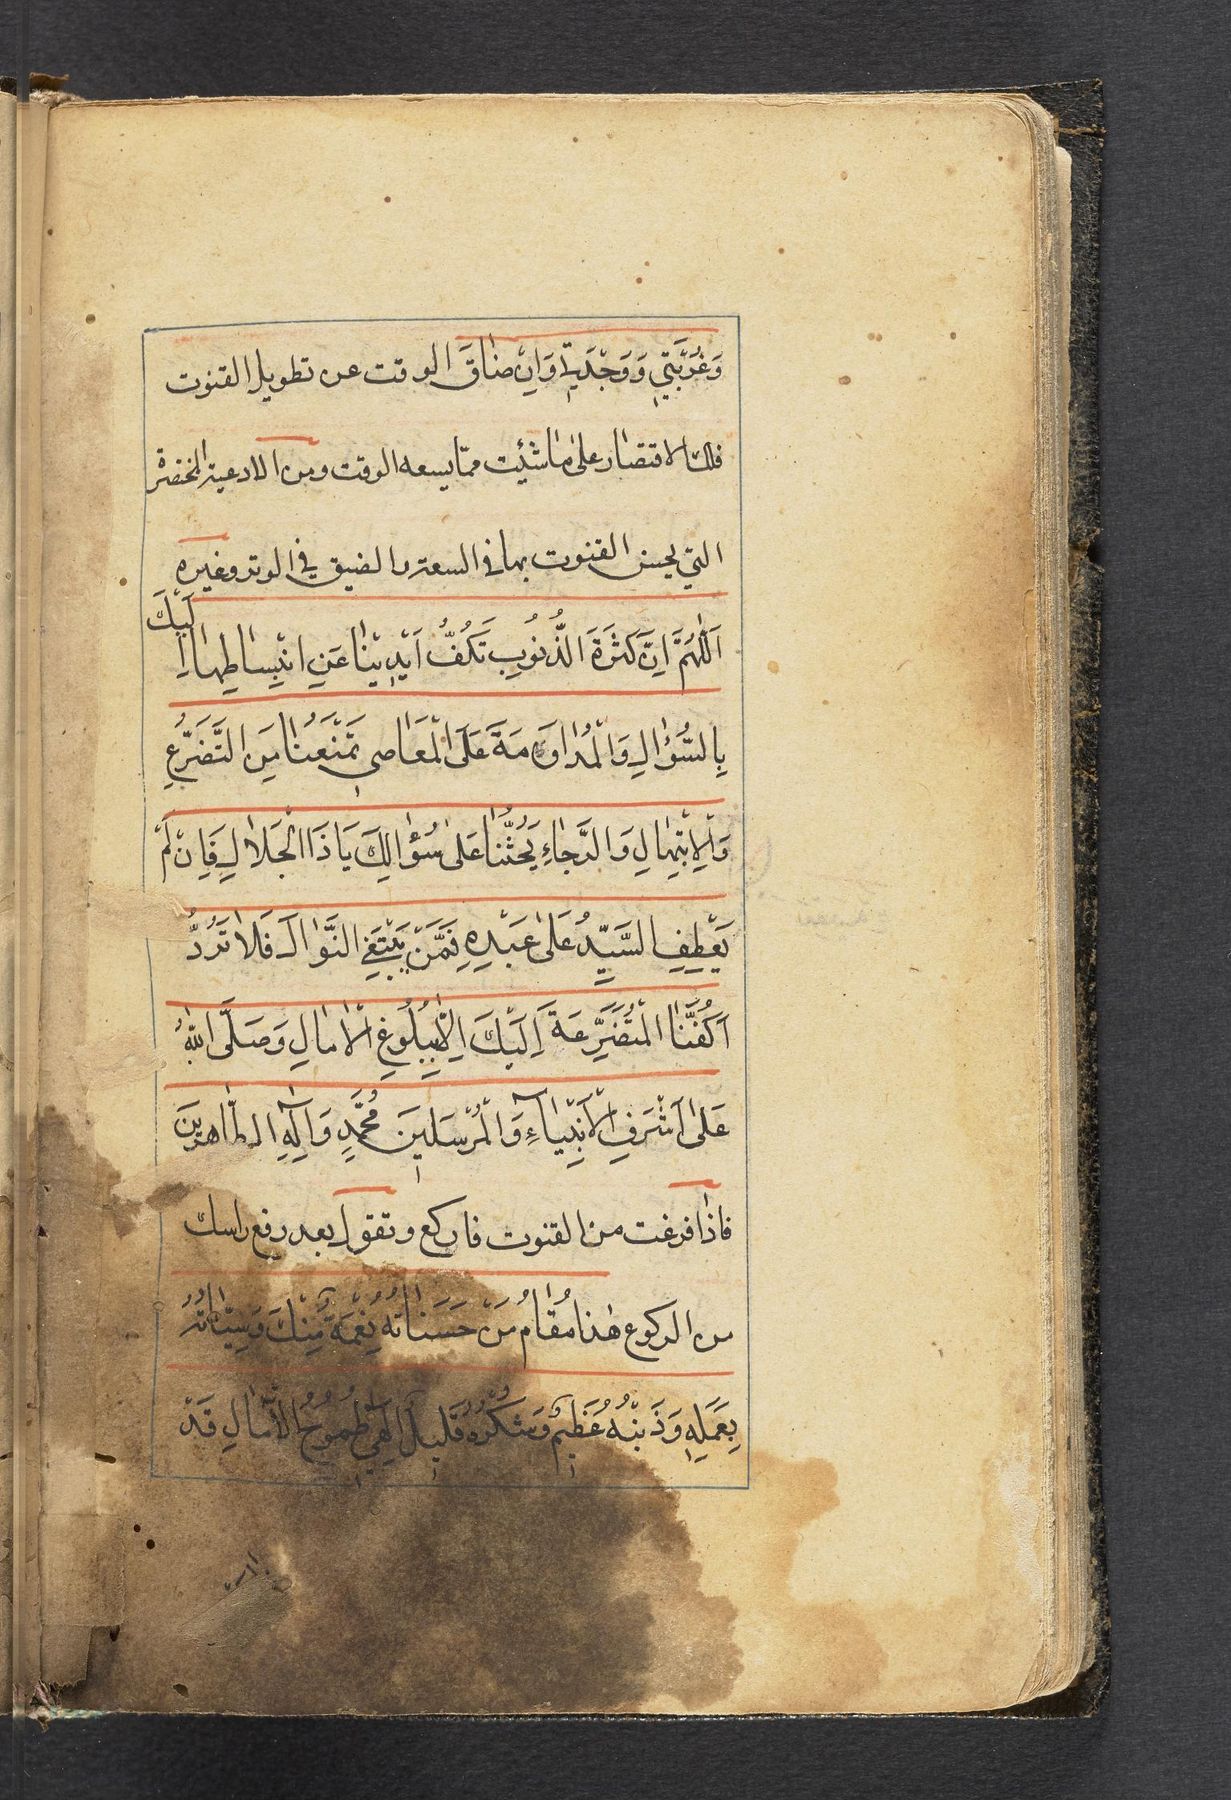 وَغُرْبَتِي وَوَحْدَتِي وَاِنْ ضاقَ الوقت عن تطويل القنوت
فلك الاقتصار على ما شئت مما يسعه الوقت ومن الادعية المختصرة
التي يحسن القنوت بها في السعة والضيق في الوتر وغيره
اَللّٰهُمَّ اِنَّ كَثْرَةَ الذُّنُوبِ تَكُفُّ اَيْدِيَنٰا عَنِ انْبِسٰاطِهٰا اِلَيْكَ
بِالسُّؤٰالِ وَالْمُدٰاوَمَةَ عَلَى الْمَعٰاصِي تَمْنَعُنٰا مِنَ التَّضَرُّعِ
وَالْاِبْتِهٰالِ وَالرَّجٰاءِ يَحُثُّنٰا عَلىٰ سُؤٰالِكَ يٰا ذَا الْجَلٰالِ فَاِنْ لَمْ
يَعْطِفِ السَّيِّدُ عَلىٰ عَبْدِهِ فَمِمَّنْ يَبْتَغِي النَّوٰالَ فَلٰا تَرُدَّ
اَكُفَّنَا الْمُتَضَرِّعَةَ اِلَيْكَ اِلّٰا بِبُلُوغِ الْاٰمٰالِ وَصَلَّى اللّٰهُ
عَلىٰ اَشْرَفِ الْاَنْبِيٰاءِ وَالْمُرْسَلِينَ مُحَمَّدٍ وَاٰلِهِ الطّٰاهِرِينَ
فاذا فرغت من القنوت فاركع وتقول بعد رفع راسك
من الركوع هٰذا مَقٰامُ مَنْ حَسَنٰاتُهُ نِعْمَةٌ مِنْكَ وَسَيِّئٰاتُهُ
بِعَمَلِهِ وَذَنْبُهُ عَظِيمٌ وَشُكْرُهُ قَلِيلٌ اِلٰهِي طُمُوحُ الْاٰمٰالِ قَدْ